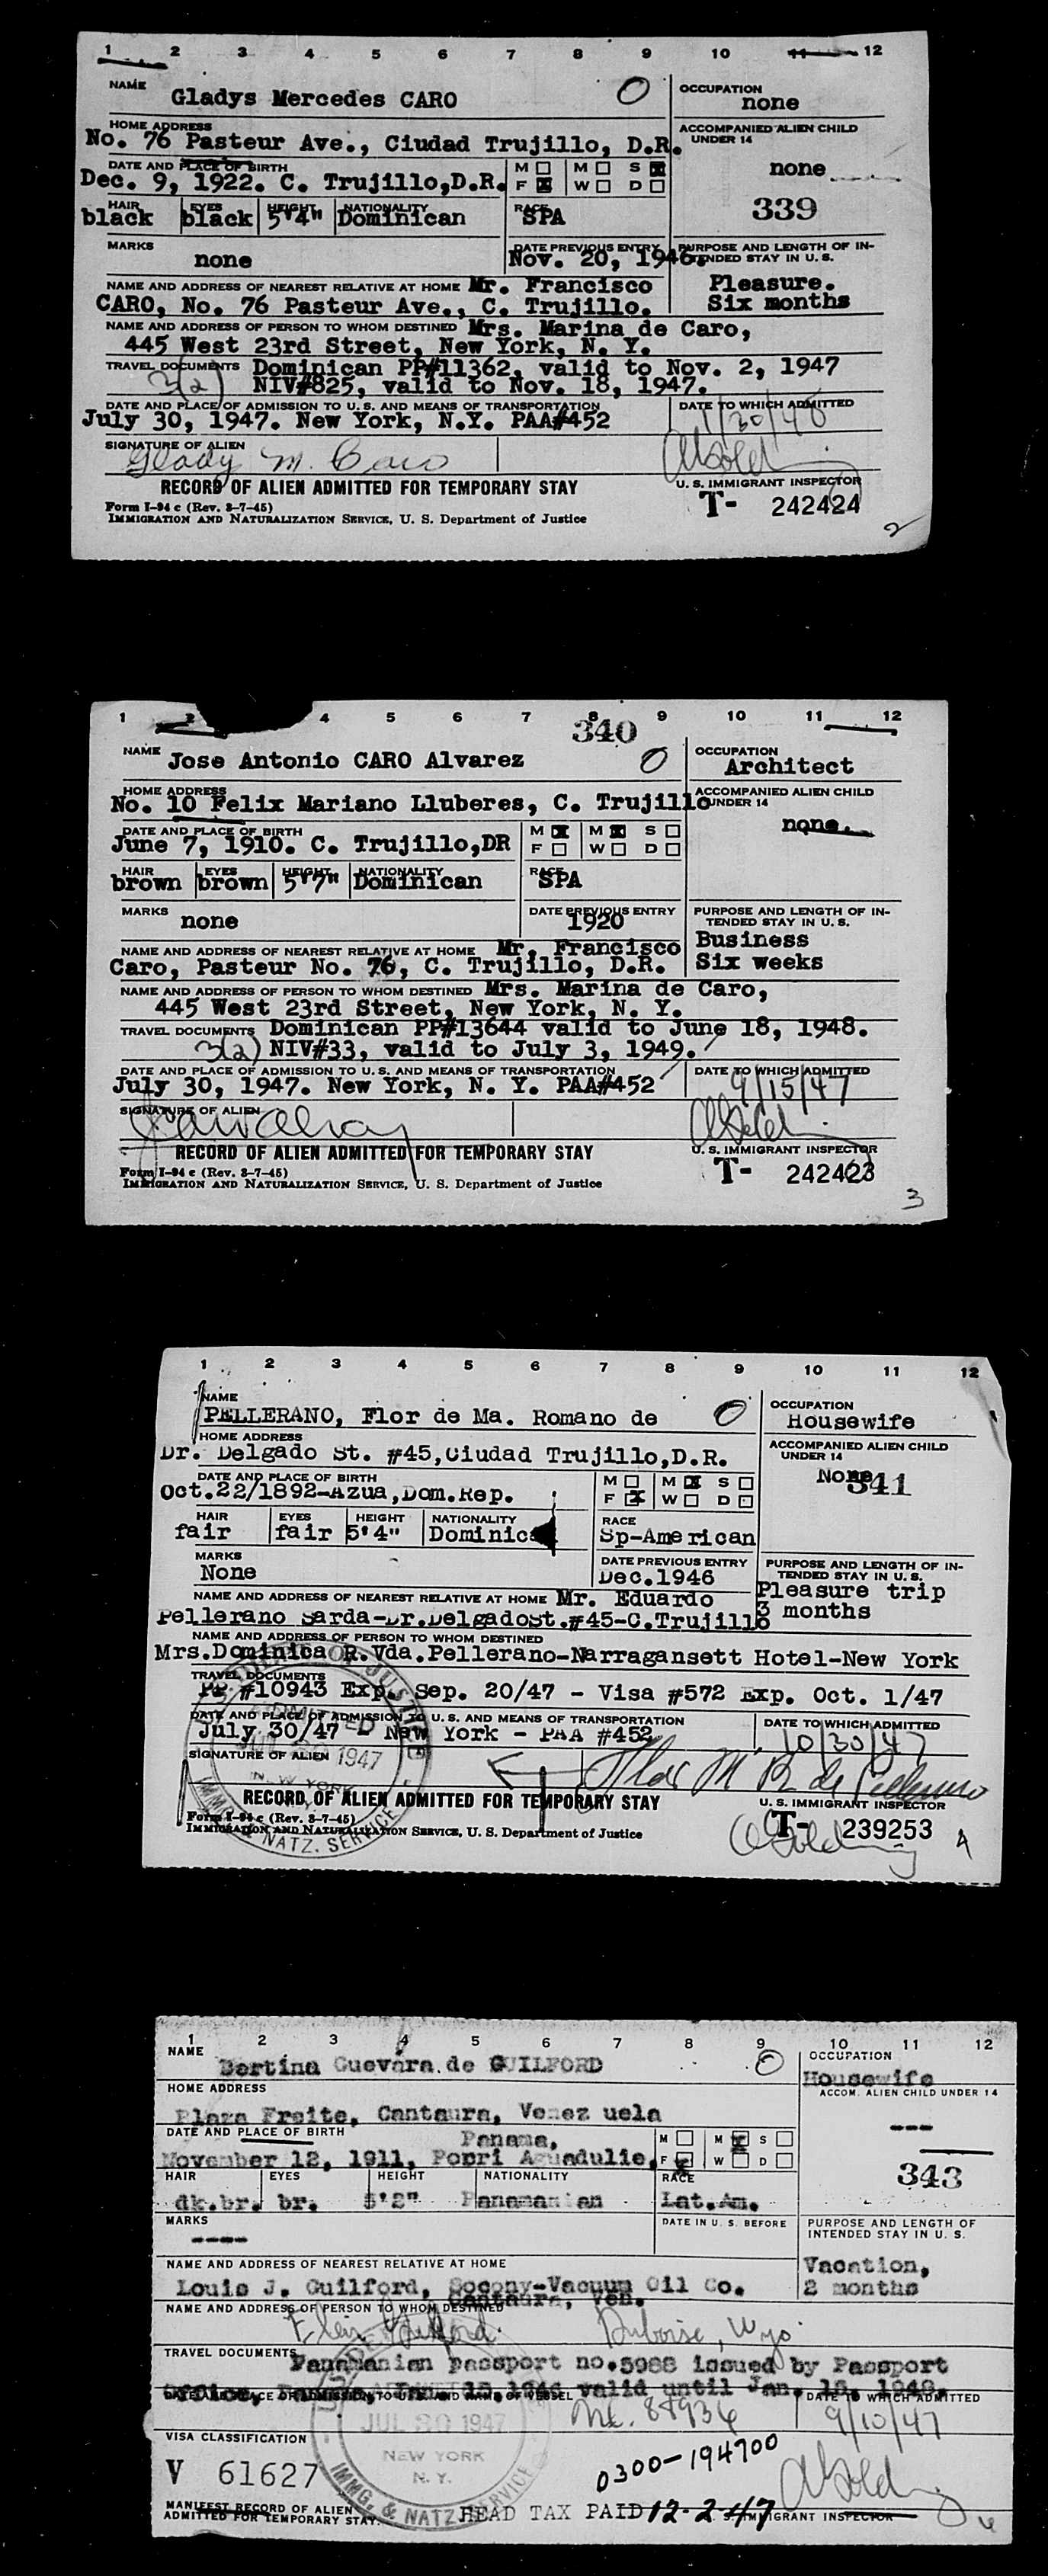 1 2 3 4 5 6 7 8 9 10 11 12
NAME Gladys Mercedes CARO O
OCCUPATION none
HOME ADDRESS
No. 76 Pasteur Ave., Ciudad Trujillo, D.R.
ACCOMPANIED ALIEN CHILD UNDER 14
none
DATE AND PLACE OF BIRTH
Dec. 9, 1922. C. Trujillo,D.R.
M F M W S D
339
HAIR black EYES black HEIGHT 5'4" NATIONALITY Dominican RACE SPA
MARKS none
DATE PREVIOUS ENTRY Nov. 20, 1946.
PURPOSE AND LENGTH OF INTENDED STAY IN U. S.
Pleasure.
Six months
NAME AND ADDRESS OF NEAREST RELATIVE AT HOME Mr. Francisco
CARO, No. 76 Pasteur Ave., C. Trujillo.
NAME AND ADDRESS OF PERSON TO WHOM DESTINED Mrs. Marina de Caro,
445 West 23rd Street, New York, N. Y.
TRAVEL DOCUMENTS Dominican PP#11362, valid to Nov. 2, 1947
3(2) NIV#825, valid to Nov. 18, 1947.
DATE AND PLACE OF ADMISSION TO U. S. AND MEANS OF TRANSPORTATION
July 30, 1947. New York, N.Y. PAA#452
DATE TO WHICH ADMITTED
1/30/48
SIGNATURE OF ALIEN
Glady M. Caro
RECORD OF ALIEN ADMITTED FOR TEMPORARY STAY
U. S. IMMIGRANT INSPECTOR
Form I-94 c (Rev. 8-7-45)
IMMIGRATION AND NATURALIZATION SERVICE, U. S. Department of Justice
T- 242424
2
1 2 4 5 6 7 8 9 10 11 12
340
NAME Jose Antonio CARO Alvarez O
OCCUPATION Architect
HOME ADDRESS
No. 10 Felix Mariano Lluberes, C. Trujillo
ACCOMPANIED ALIEN CHILD UNDER 14
none.
DATE AND PLACE OF BIRTH
June 7, 1910. C. Trujillo,DR
M F M W S D
HAIR brown EYES brown HEIGHT 5'7" NATIONALITY Dominican RACE SPA
MARKS none
DATE PREVIOUS ENTRY 1920
PURPOSE AND LENGTH OF INTENDED STAY IN U. S.
Business
Six weeks
NAME AND ADDRESS OF NEAREST RELATIVE AT HOME Mr. Francisco
Caro, Pasteur No. 76, C. Trujillo, D.R.
NAME AND ADDRESS OF PERSON TO WHOM DESTINED Mrs. Marina de Caro,
445 West 23rd Street, New York, N. Y.
TRAVEL DOCUMENTS Dominican PP#13644 valid to June 18, 1948.
3(2) NIV#33, valid to July 3, 1949.
DATE AND PLACE OF ADMISSION TO U. S. AND MEANS OF TRANSPORTATION
July 30, 1947. New York, N. Y. PAA#452
DATE TO WHICH ADMITTED
9/15/47
SIGNATURE OF ALIEN
RECORD OF ALIEN ADMITTED FOR TEMPORARY STAY
U. S. IMMIGRANT INSPECTOR
Form I-94 c (Rev. 8-7-45)
IMMIGRATION AND NATURALIZATION SERVICE, U. S. Department of Justice
T- 242423
3
1 2 3 4 5 6 7 8 9 10 11 12
NAME
PELLERANO, Flor de Ma. Romano de O
OCCUPATION
Housewife
HOME ADDRESS
Dr. Delgado St. #45,Ciudad Trujillo,D.R.
ACCOMPANIED ALIEN CHILD UNDER 14
None
341
DATE AND PLACE OF BIRTH
Oct.22/1892-Azua,Dom.Rep.
M F M W S D
HAIR fair EYES fair HEIGHT 5'4" NATIONALITY Dominica RACE Sp-American
MARKS
None
DATE PREVIOUS ENTRY
Dec.1946
PURPOSE AND LENGTH OF INTENDED STAY IN U. S.
Pleasure trip
3 months
NAME AND ADDRESS OF NEAREST RELATIVE AT HOME Mr. Eduardo
Pellerano Sarda-Dr.DelgadoSt.#45-C.Trujillo
NAME AND ADDRESS OF PERSON TO WHOM DESTINED
Mrs.Dominica R.Vda.Pellerano-Narragansett Hotel-New York
TRAVEL DOCUMENTS
PP #10943 Exp. Sep. 20/47 - Visa #572 Exp. Oct. 1/47
DATE AND PLACE OF ADMISSION TO U. S. AND MEANS OF TRANSPORTATION
July 30/47 New York - PAA #452
DATE TO WHICH ADMITTED
10/30/47
SIGNATURE OF ALIEN
Flor M R. de Pellerano
RECORD OF ALIEN ADMITTED FOR TEMPORARY STAY
U. S. IMMIGRANT INSPECTOR
Form I-94 c (Rev. 8-7-45)
IMMIGRATION AND NATURALIZATION SERVICE, U. S. Department of Justice
T- 239253
4
1 2 3 4 5 6 7 8 9 10 11 12
NAME
Bertina Guevara de GUILFORD O
OCCUPATION
Housewife
HOME ADDRESS
Plaza Freite, Cantaura, Venez uela
ACCOM. ALIEN CHILD UNDER 14
---
DATE AND PLACE OF BIRTH Panama,
November 12, 1911, Pocri Aguadulie,
M F M W S D
343
HAIR dk.br. EYES br. HEIGHT 5'2" NATIONALITY Panamanian RACE Lat.Am.
MARKS
----
DATE IN U. S. BEFORE
PURPOSE AND LENGTH OF INTENDED STAY IN U. S.
Vacation,
2 months
NAME AND ADDRESS OF NEAREST RELATIVE AT HOME
Louis J. Guilford, Socony-Vacuum Oil Co.
Cantaura, Ven.
NAME AND ADDRESS OF PERSON TO WHOM DESTINED
Guilford. Duboise, Wyo.
TRAVEL DOCUMENTS
Panamanian passport no.5988 issued by Passport
Office, Panama, Jan. 18 1946 valid until Jan. 18, 1948.
DATE TO WHICH ADMITTED
88936
9/10/47
JUL 30 1947
NEW YORK
N. Y.
IMMG. & NATZ. SERVICE
VISA CLASSIFICATION
V 61627
0300-194700
MANIFEST RECORD OF ALIEN
ADMITTED FOR TEMPORARY STAY.
HEAD TAX PAID 12-2-47
IMMIGRANT INSPECTOR